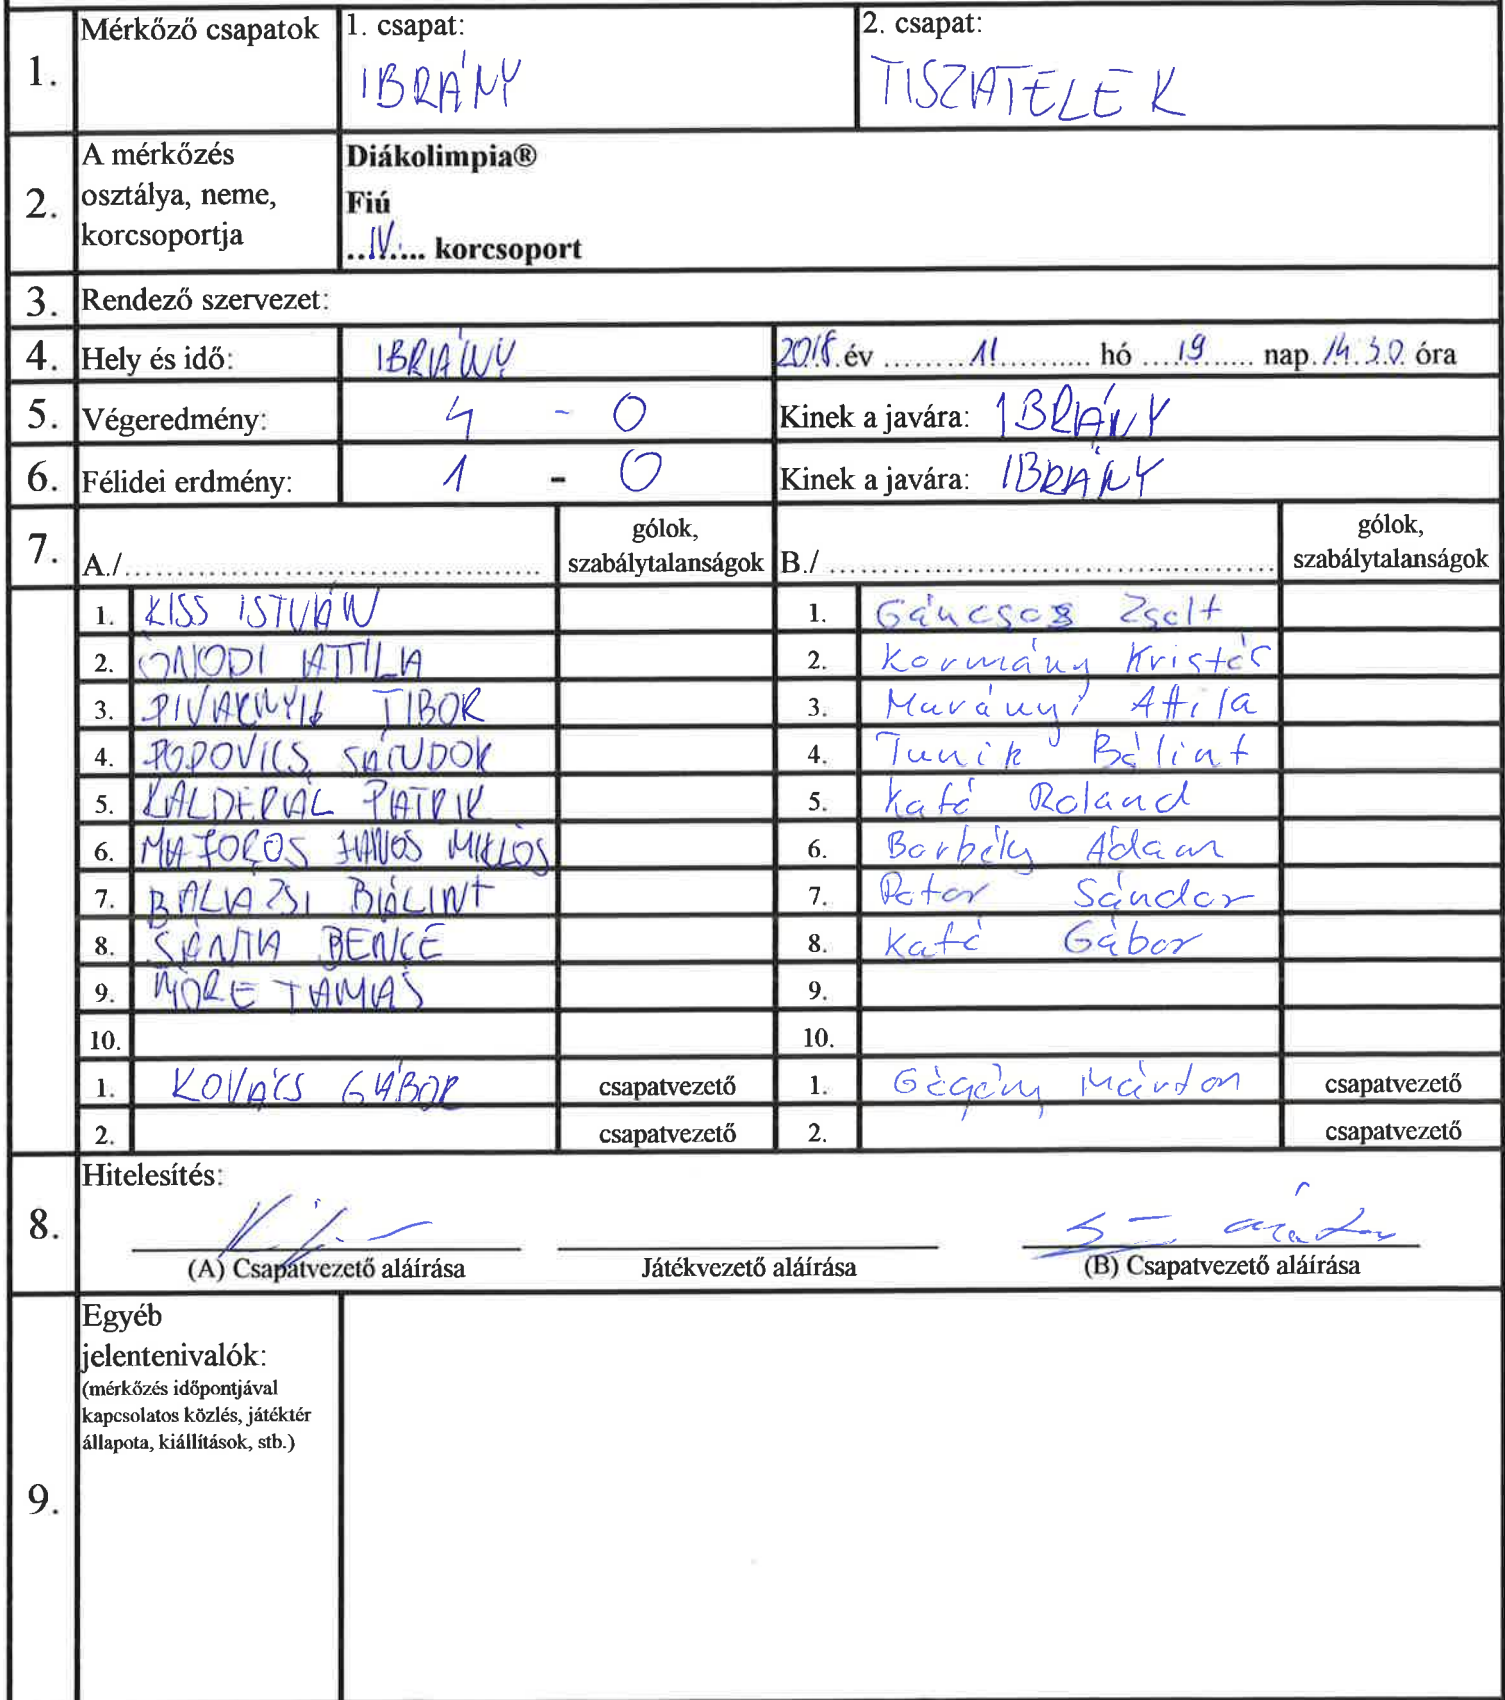 1. Mérkőző csapatok 1. csapat: 2. csapat:
IBRÁNY TISZATELEK
2. A mérkőzés osztálya, neme, korcsoportja
Diákolimpia®
Fiú
..IV.... korcsoport
3. Rendező szervezet:
4. Hely és idő: IBRÁNY 2018. év ........11........... hó ....19...... nap. 14.30. óra
5. Végeredmény: 4 - 0 Kinek a javára: IBRÁNY
6. Félidei erdmény: 1 - 0 Kinek a javára: IBRÁNY
7. A./ gólok, szabálytalanságok B./ gólok, szabálytalanságok
1. KISS ISTVÁN 1. Gáncsos Zsolt
2. ÓNODI ATTILA 2. Kormány Kristóf
3. TIBOR 3. Murányi Attila
4. POPOVICS SÁNDOR 4. Tunik Bálint
5. KALDERÁL PATRIK 5. Kató Roland
6. JÁNOS MIKLÓS 6. Borbély Ádám
7. BALVAZSI BÁLINT 7. Petor Sándor
8. SÁNTA BENCE 8. Kató Gábor
9. MÓRE TAMÁS 9.
10. 10.
1. KOVÁCS GÁBOR csapatvezető 1. Gégény Márton csapatvezető
2. csapatvezető 2. csapatvezető
8. Hitelesítés:
(A) Csapatvezető aláírása Játékvezető aláírása (B) Csapatvezető aláírása
9. Egyéb
jelentenivalók:
(mérkőzés időpontjával
kapcsolatos közlés, játéktér
állapota, kiállítások, stb.)